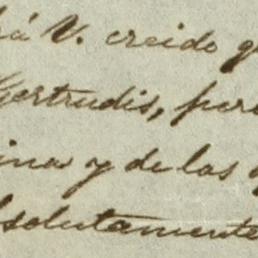 há V. creido q
Gertrudis, pero
inas y de las
bsolutamente